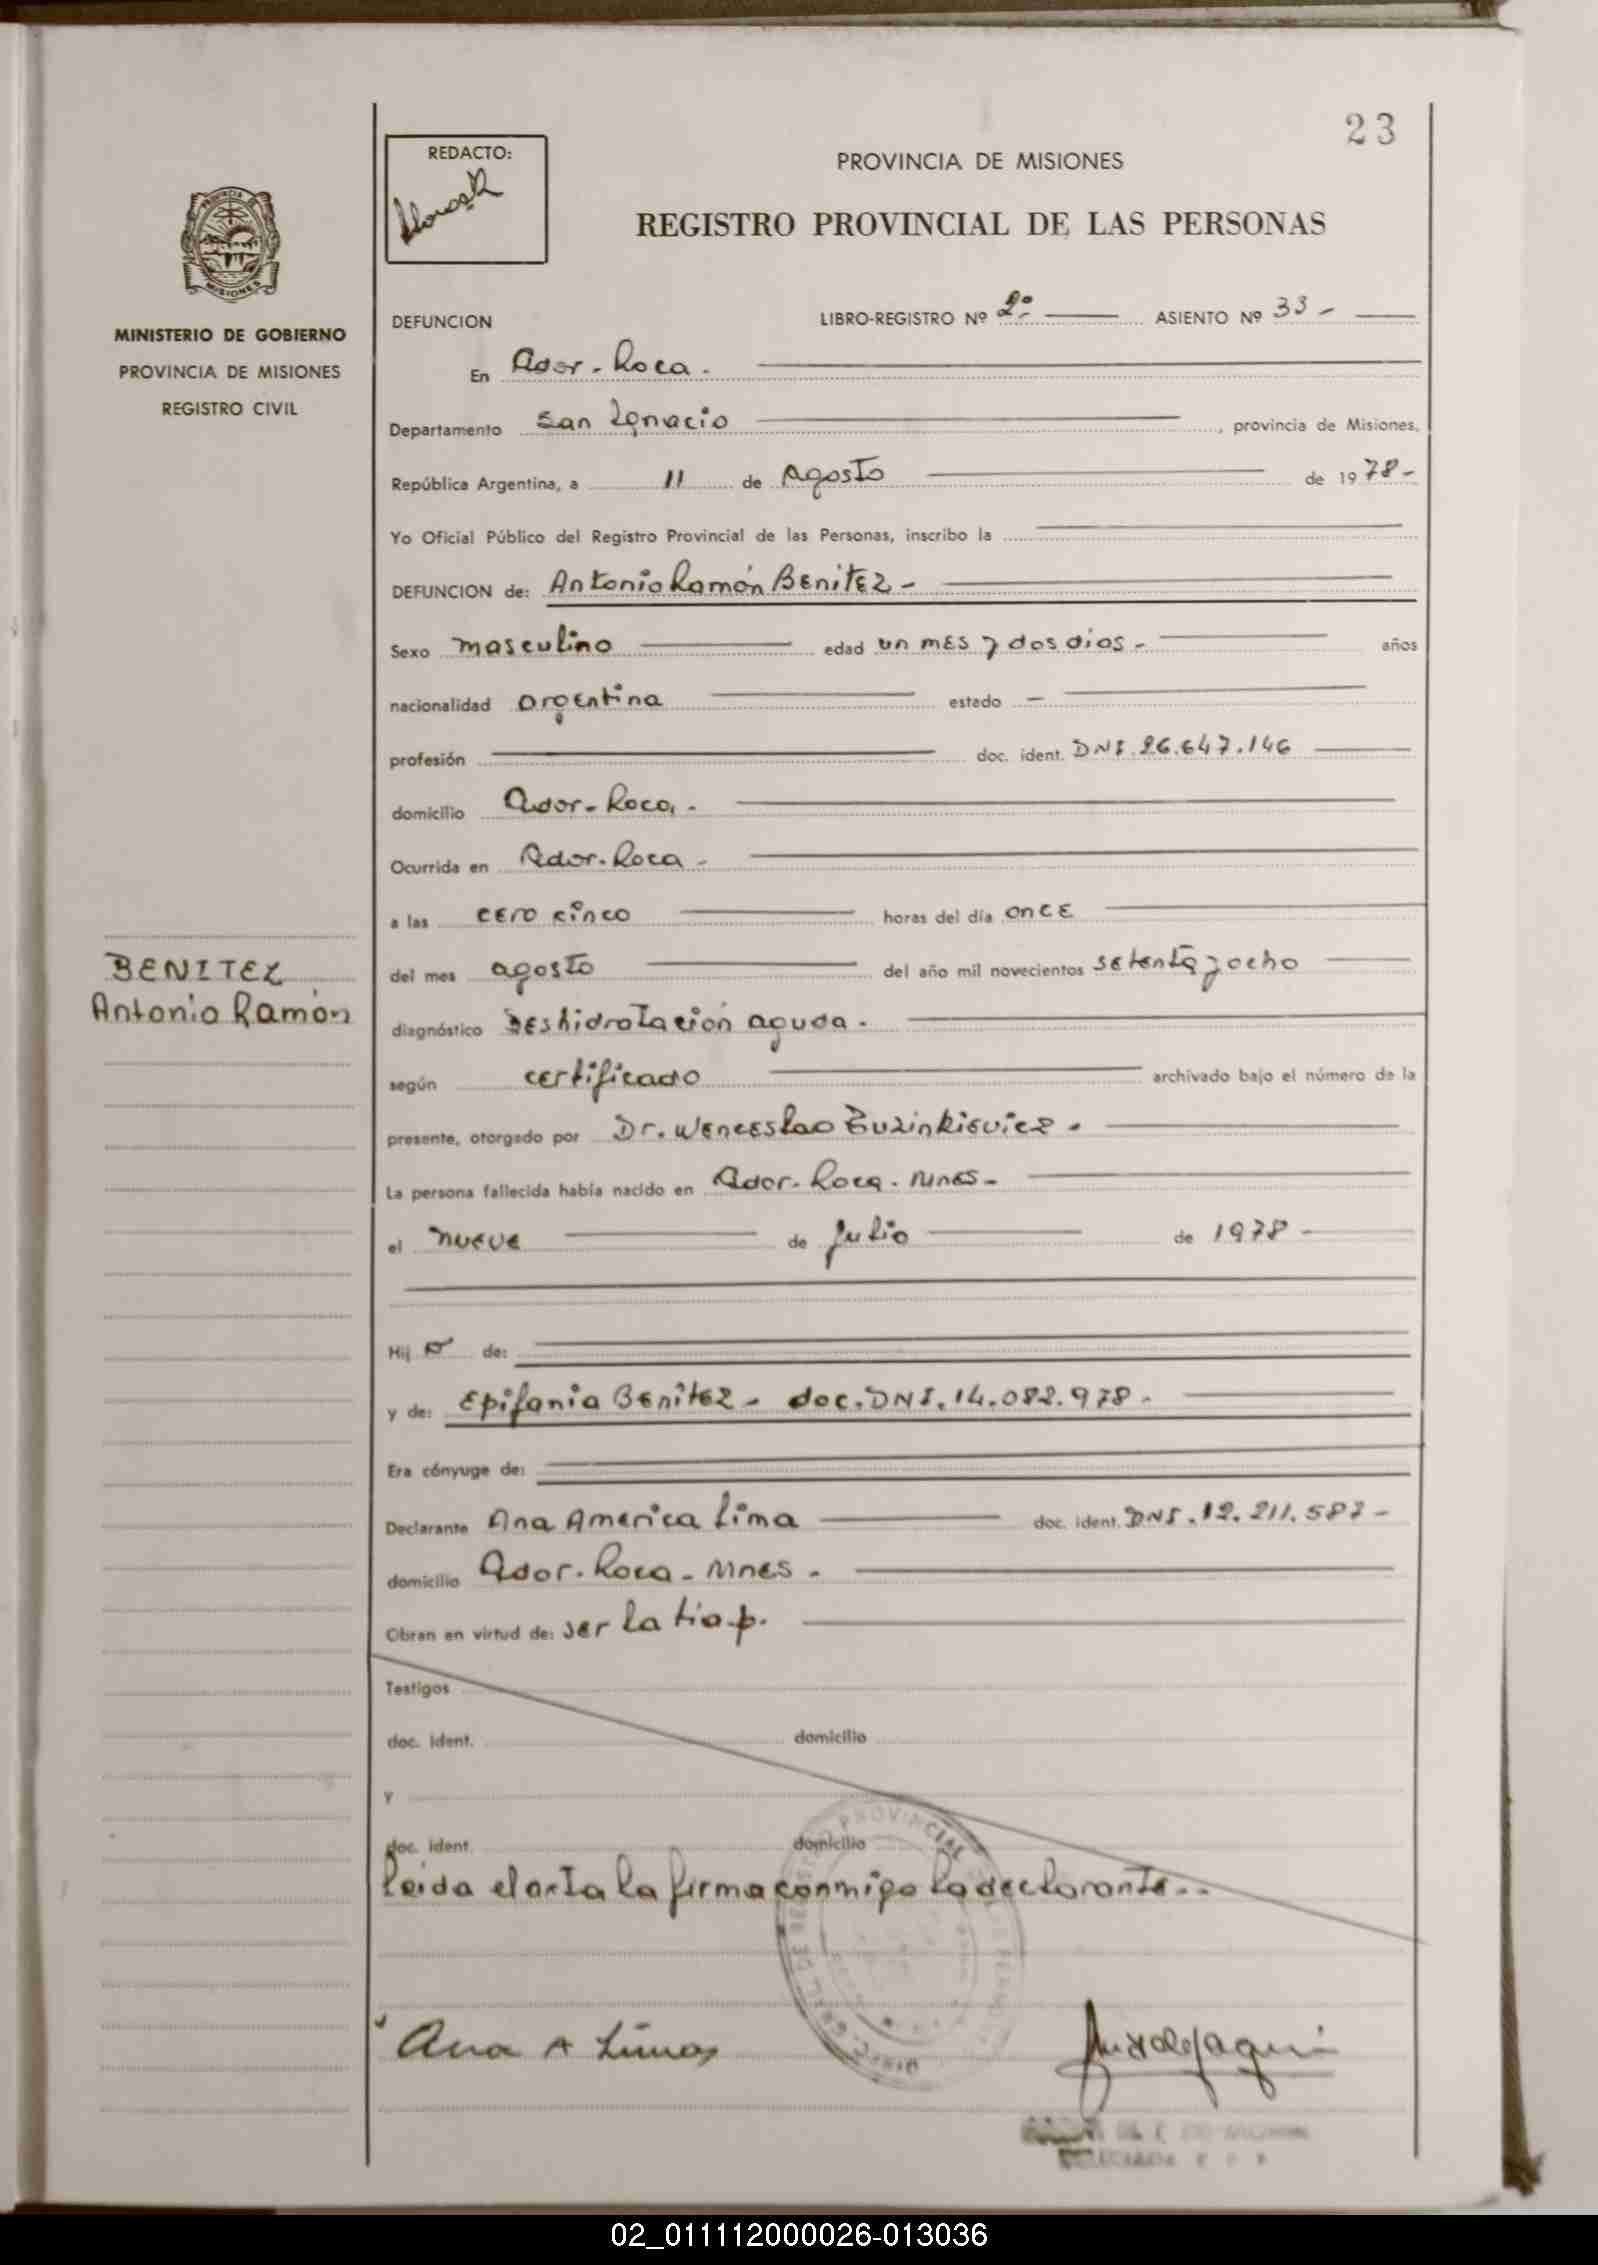 23
REDACTO:
PROVINCIA DE MISIONES
REGISTRO PROVINCIAL DE LAS PERSONAS
PROVINCIA DE
MISIONES
MINISTERIO DE GOBIERNO
PROVINCIA DE MISIONES
REGISTRO CIVIL
DEFUNCION LIBRO-REGISTRO Nº 2º- ASIENTO Nº 33-
En Ador-Roca.
Departamento San Ignacio, provincia de Misiones,
República Argentina, a 11 de Agosto de 1978-
Yo Oficial Público del Registro Provincial de las Personas, inscribo la
DEFUNCION de: Antonio Ramón BENITEZ-
Sexo masculino edad un mes y dos dias- años
nacionalidad argentina estado -
profesión doc. ident. DNI.26.647.146
domicilio Ador-Roca.-
Ocurrida en Ador-Roca-
a las cero cinco horas del día once
del mes agosto del año mil novecientos setenta y ocho
BENITEZ
Antonio Ramón
diagnóstico Deshidratación aguda.
según certificado archivado bajo el número de la
presente, otorgado por Dr. Wenceslao Buzinkievicz.
La persona fallecida había nacido en Ador-Roca-Mnes-
el nueve de julio de 1978-
Hij o de:
y de: Epifania Benitez- doc.DNI.14.082.978-
Era cónyuge de:
Declarante Ana America Lima doc. ident. DNI.12.211.587-
domicilio Ador-Roca-Mnes.
Obran en virtud de: ser la tia p.
Testigos
doc. ident. domicilio
y
doc. ident. domicilio
Leida el acta la firma conmigo la declarante..
Ana A Lima
02_011112000026-013036